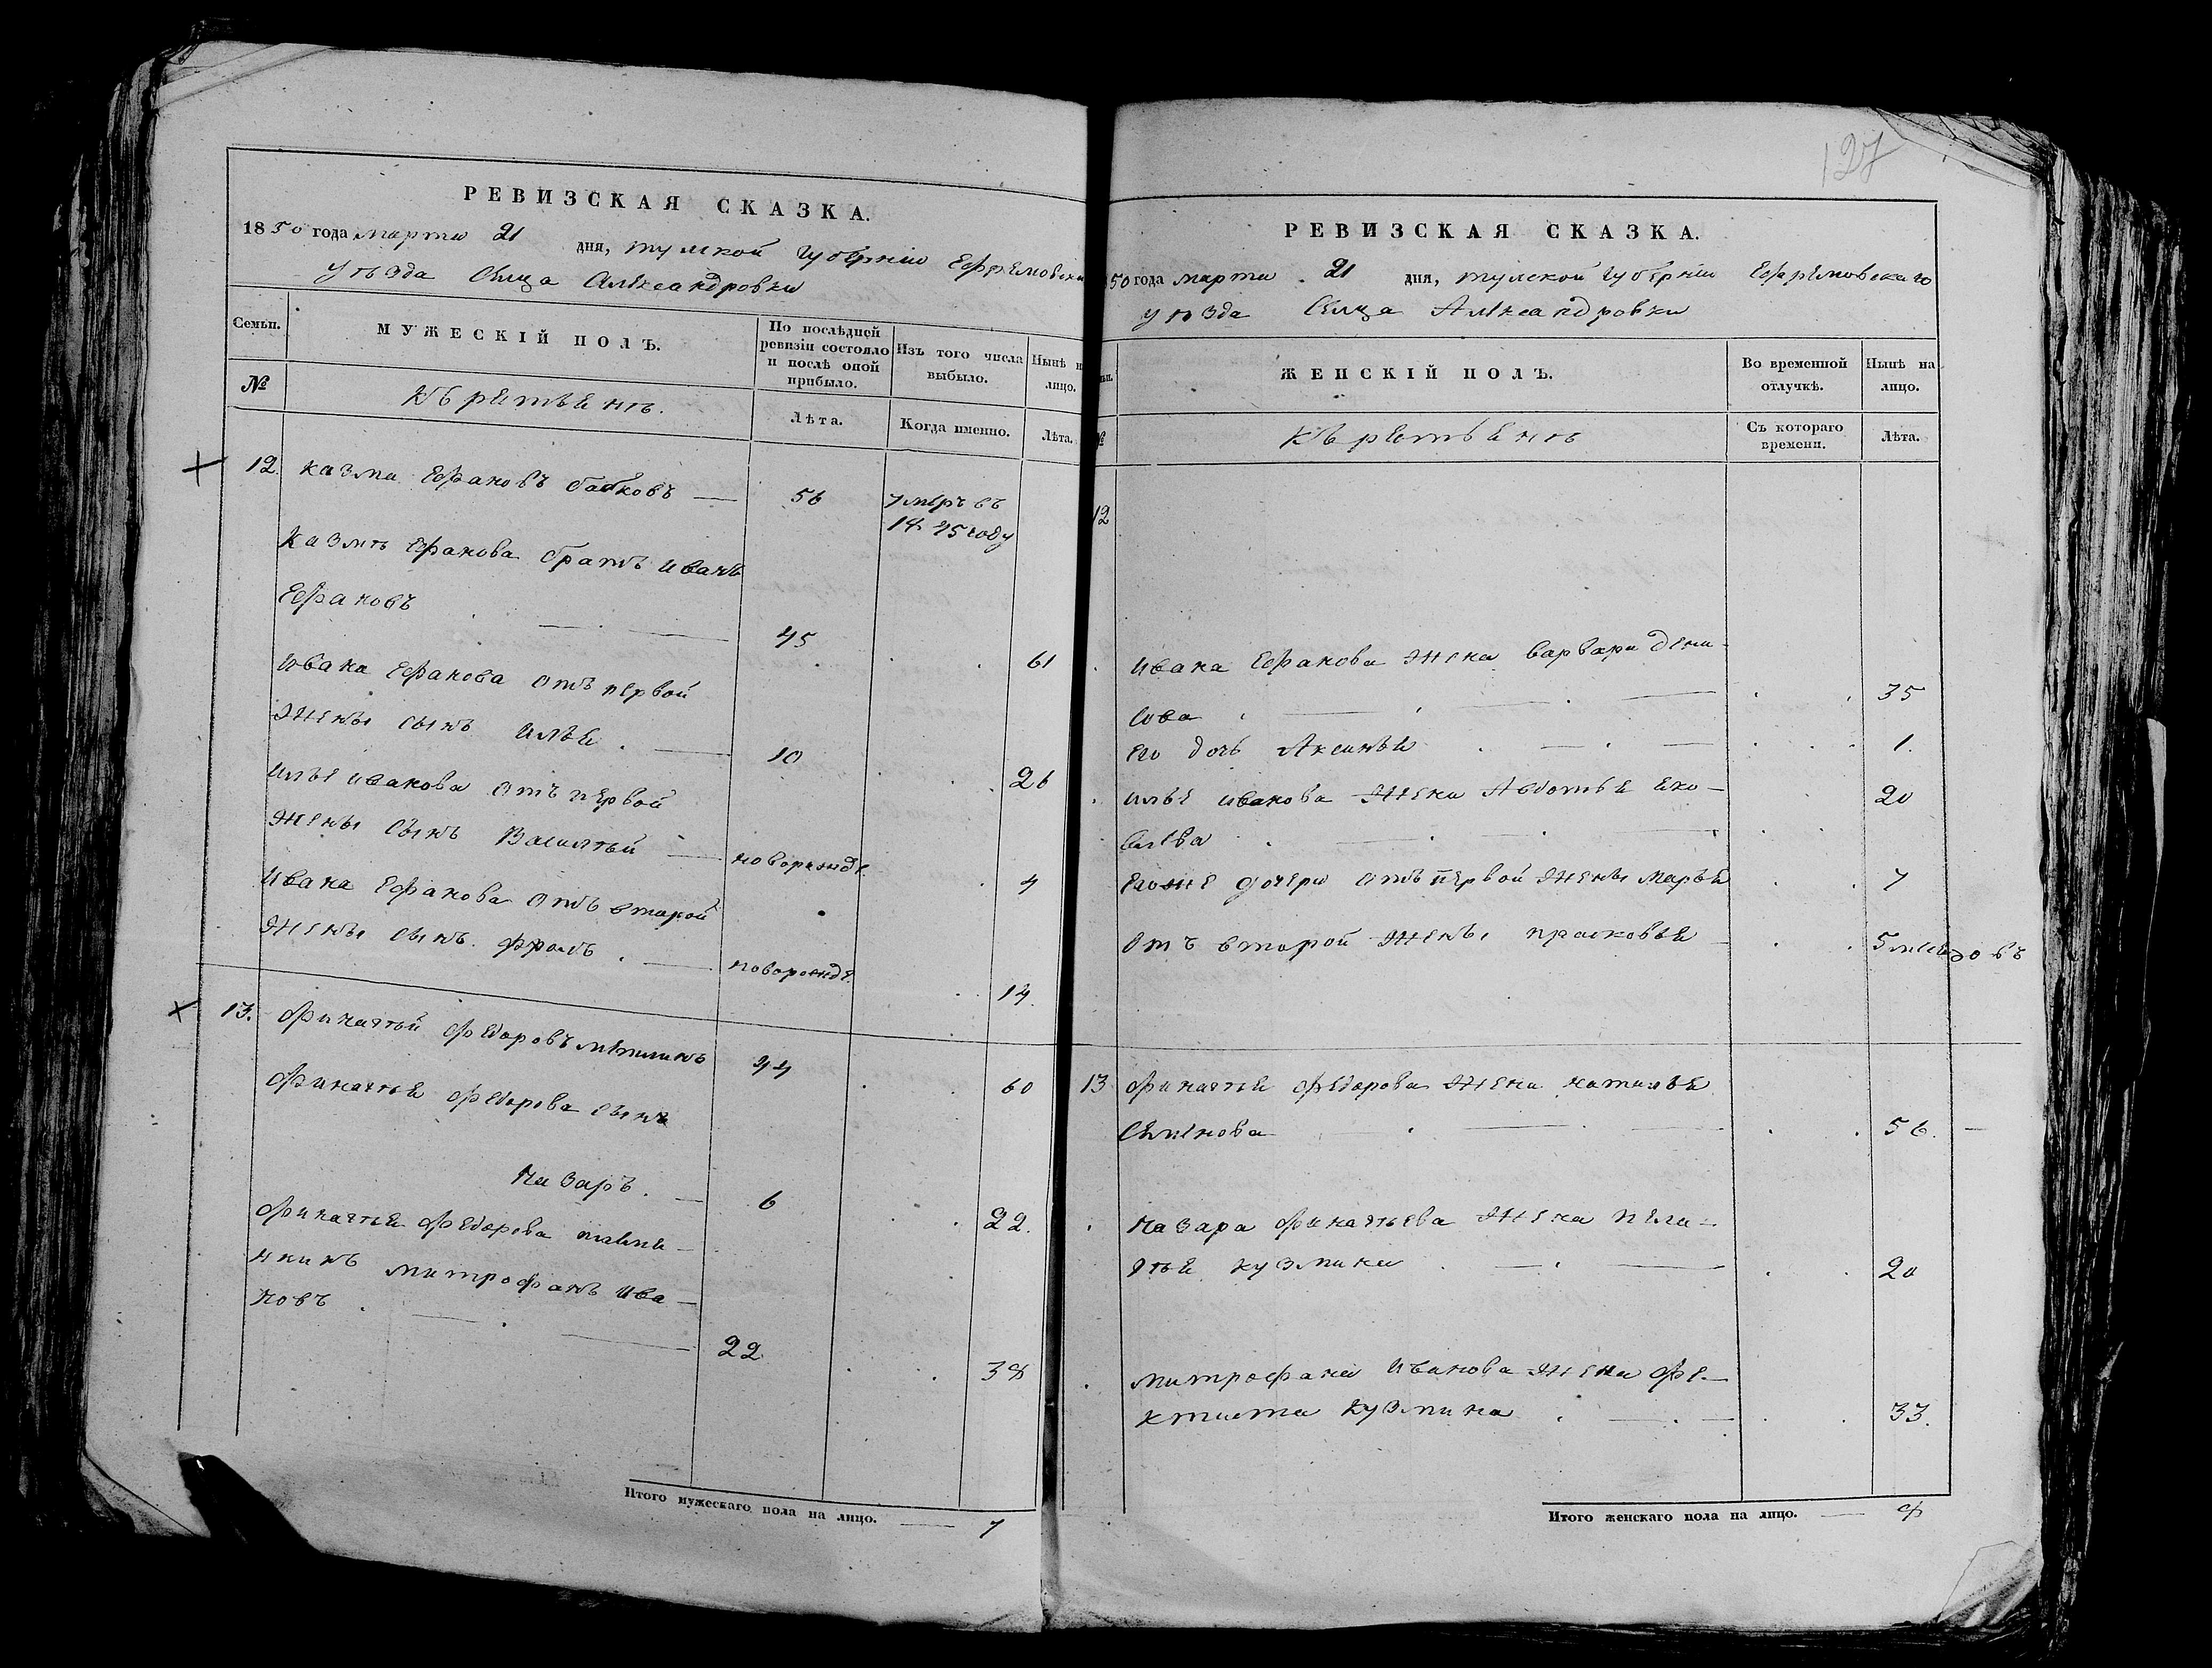 РЕВИЗСКАЯ СКАЗКА.
1850 года марта 21 дня, тулской губѣрніи Ефремовска
уъзда Сѣлца Александровки
Семьи.
МУЖЕСКІЙ ПОЛЪ.
По послѣдней ревизіи состояло и послѣ оной прибыло.
Изъ того числа выбыло.
Нынѣ н лицо.
№
Лѣта.
Когда именно.
Лѣта.
12. казма Ефановъ бабковъ — 56 умеръ въ
1845 году
Казмы Ефанова братъ иванъ
Ефановъ 45 61
ивана Ефанова отъ первой
жены сынъ илья 10 26
ильи иванова отъ первой
жены сынъ Василѣй — новорожде. 4
ивана Ефанова отъ второй
жены сынъ фролъ — новорожде. 14
13. финагѣй федоровъ 44 60
финагѣя федорова сынъ
назаръ. 6 22.
финагѣя федорова племя-
нникъ митрофанъ ива-
новъ 22 38
Итого мужескаго пола на лицо. — 7
127
РЕВИЗСКАЯ СКАЗКА.
50 года марта 21 дня, тулской губѣрніи Ефремовскаго
уъзда Сѣлца Александровки
ЖЕНСКІЙ ПОЛЪ.
Во временной отлучкѣ.
Нынѣ на лицо.
Съ котораго времени.
Лѣта.
12
ивана Ефанова жена варвара дени-
сова 35
Его дочь Аксинья 1.
ильи иванова жена Авдотья яко-
влева 20
Егоже дочери отъ первой жены марья 7
отъ второй жены прасковья 5 месяцовъ
13 финагѣя федорова жена наталья
Семенова 56.
назара финагѣева жена пела-
гѣя кузмина 20
митрофана иванова жена фе-
ктиста кузмина 33.
Итого женскаго пола на лицо. — 8